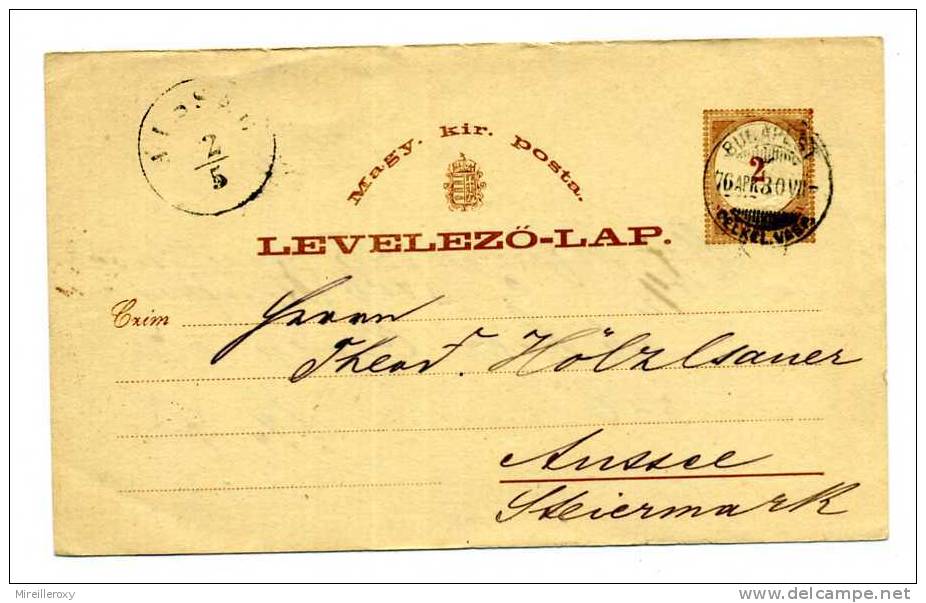 AUSSEE
2
5
Magy. kir. posta.
BUDAPEST
2
76 APR 30 VII
LEVELEZŐ-LAP.
Czim
Herrn
Theod. Hölzlsauer
Aussee
Steiermark
Mireilleroxy
www.delcampe.net